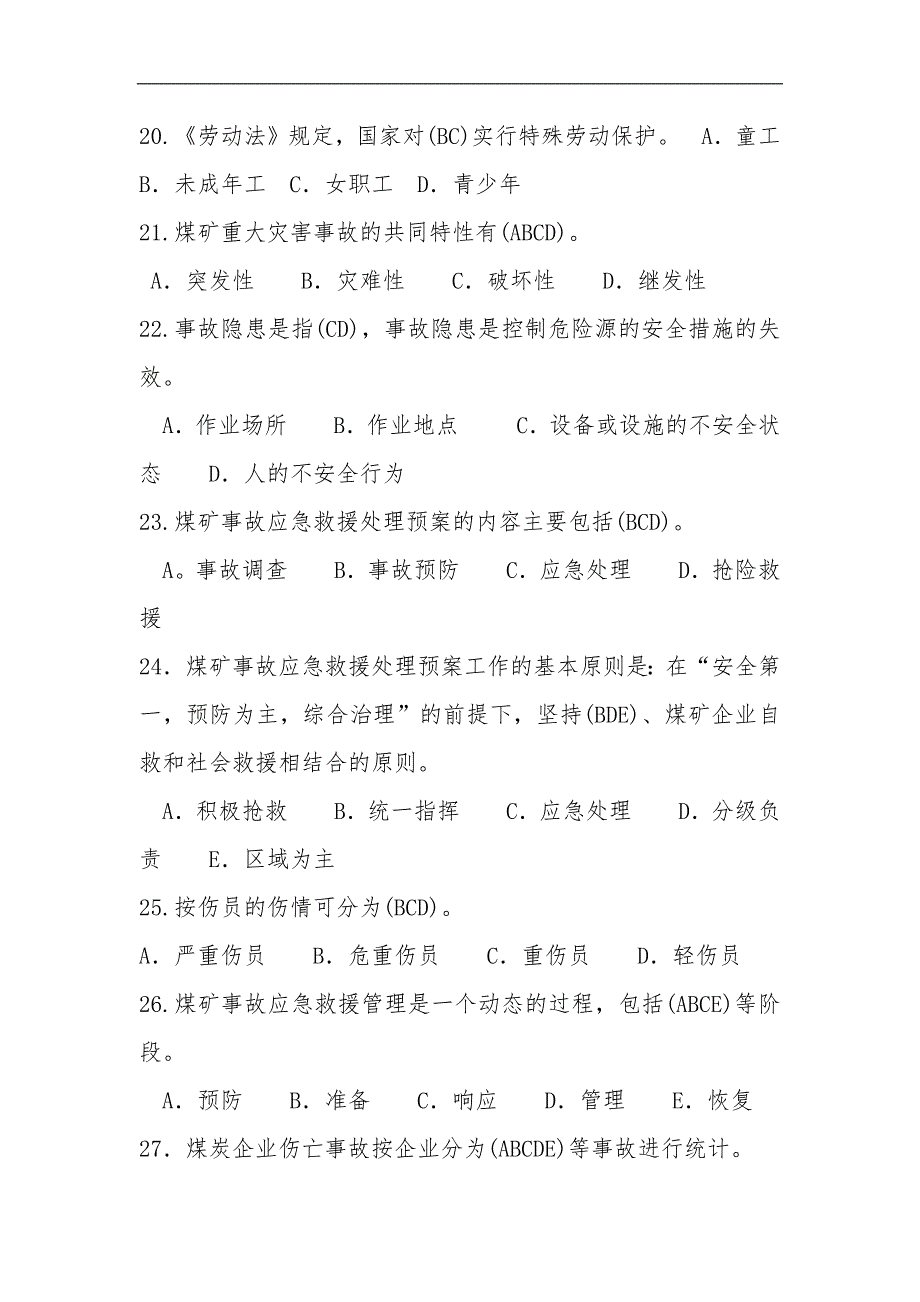 20.《劳动法》规定，国家对(BC)实行特殊劳动保护。 A．童工
B．未成年工 C．女职工 D．青少年
21.煤矿重大灾害事故的共同特性有(ABCD)。
A．突发性 B．灾难性 C．破坏性 D．继发性
22.事故隐患是指(CD)，事故隐患是控制危险源的安全措施的失
效。
A．作业场所 B．作业地点 C．设备或设施的不安全状
态 D．人的不安全行为
23.煤矿事故应急救援处理预案的内容主要包括(BCD)。
A。事故调查 B．事故预防 C．应急处理 D．抢险救
援
24．煤矿事故应急救援处理预案工作的基本原则是：在“安全第
一，预防为主，综合治理”的前提下，坚持(BDE)、煤矿企业自
救和社会救援相结合的原则。
A．积极抢救 B．统一指挥 C．应急处理 D．分级负
责 E．区域为主
25.按伤员的伤情可分为(BCD)。
A．严重伤员 B．危重伤员 C．重伤员 D．轻伤员
26.煤矿事故应急救援管理是一个动态的过程，包括(ABCE)等阶
段。
A．预防 B．准备 C．响应 D．管理 E．恢复
27．煤炭企业伤亡事故按企业分为(ABCDE)等事故进行统计。